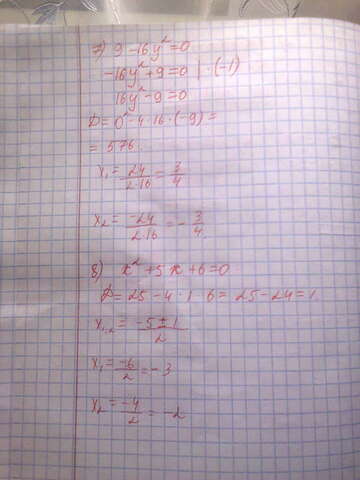 7) 9-16y²=0
-16y²+9=0 | ·(-1)
16y²-9=0
D=0²-4·16·(-9)=
=576.
x₁=24/2·16=3/4
x₂=-24/2·16=-3/4.
8) x²+5x+6=0
D=25-4·1·6=25-24=1.
x₁,₂=-5±1/2
x₁=-6/2=-3
x₂=-4/2=-2